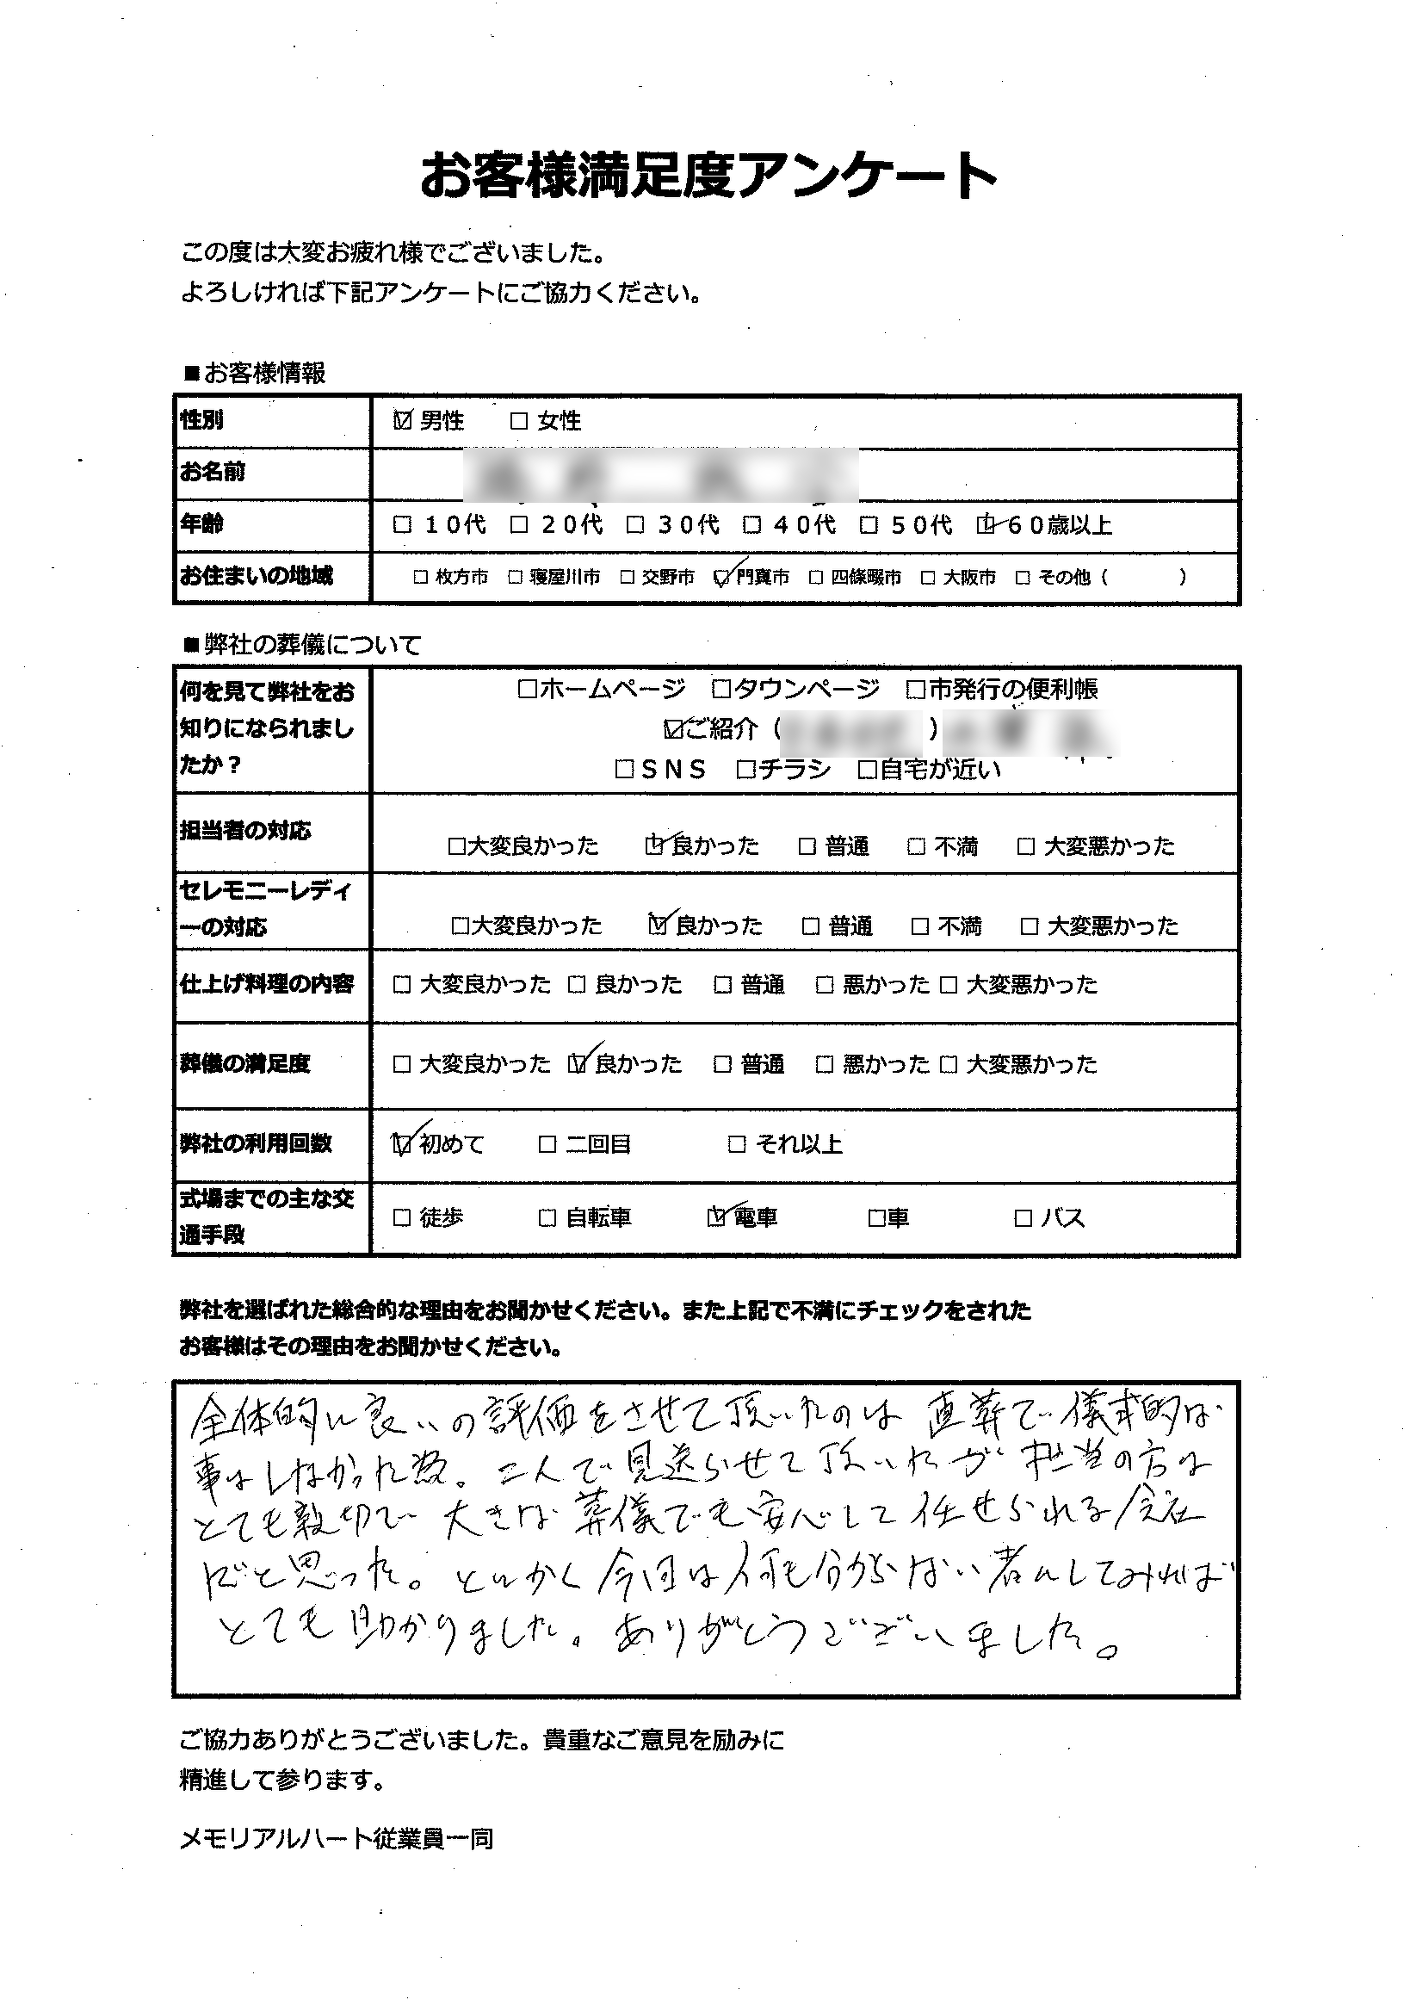 お客様満足度アンケート
この度は大変お疲れ様でございました。
よろしければ下記アンケートにご協力ください。
■お客様情報
性別 ☑ 男性 □ 女性
お名前
年齢 □ 10代 □ 20代 □ 30代 □ 40代 □ 50代 ☑ 60歳以上
お住まいの地域 □ 枚方市 □ 寝屋川市 □ 交野市 ☑ 門真市 □ 四條畷市 □ 大阪市 □ その他（　　　）
■弊社の葬儀について
何を見て弊社をお
知りになられまし
たか？
□ホームページ □タウンページ □市発行の便利帳
☑ご紹介（　　　）
□SNS □チラシ □自宅が近い
担当者の対応 □大変良かった ☑良かった □ 普通 □ 不満 □ 大変悪かった
セレモニーレディ
ーの対応 □大変良かった ☑良かった □ 普通 □ 不満 □ 大変悪かった
仕上げ料理の内容 □ 大変良かった □ 良かった □ 普通 □ 悪かった □ 大変悪かった
葬儀の満足度 □ 大変良かった ☑ 良かった □ 普通 □ 悪かった □ 大変悪かった
弊社の利用回数 ☑ 初めて □ 二回目 □ それ以上
式場までの主な交
通手段 □ 徒歩 □ 自転車 ☑ 電車 □車 □ バス
弊社を選ばれた総合的な理由をお聞かせください。また上記で不満にチェックをされた
お客様はその理由をお聞かせください。
全体的に良いの評価をさせて頂いたのは 直葬で儀式的な
事はしなかった為。二人で見送らせて頂いたが 担当の方は
とても親切で 大きな葬儀でも安心して任せられる会社
だと思った。とにかく今回は何も分からない者にしてみれば
とても助かりました。ありがとうございました。
ご協力ありがとうございました。貴重なご意見を励みに
精進して参ります。
メモリアルハート従業員一同